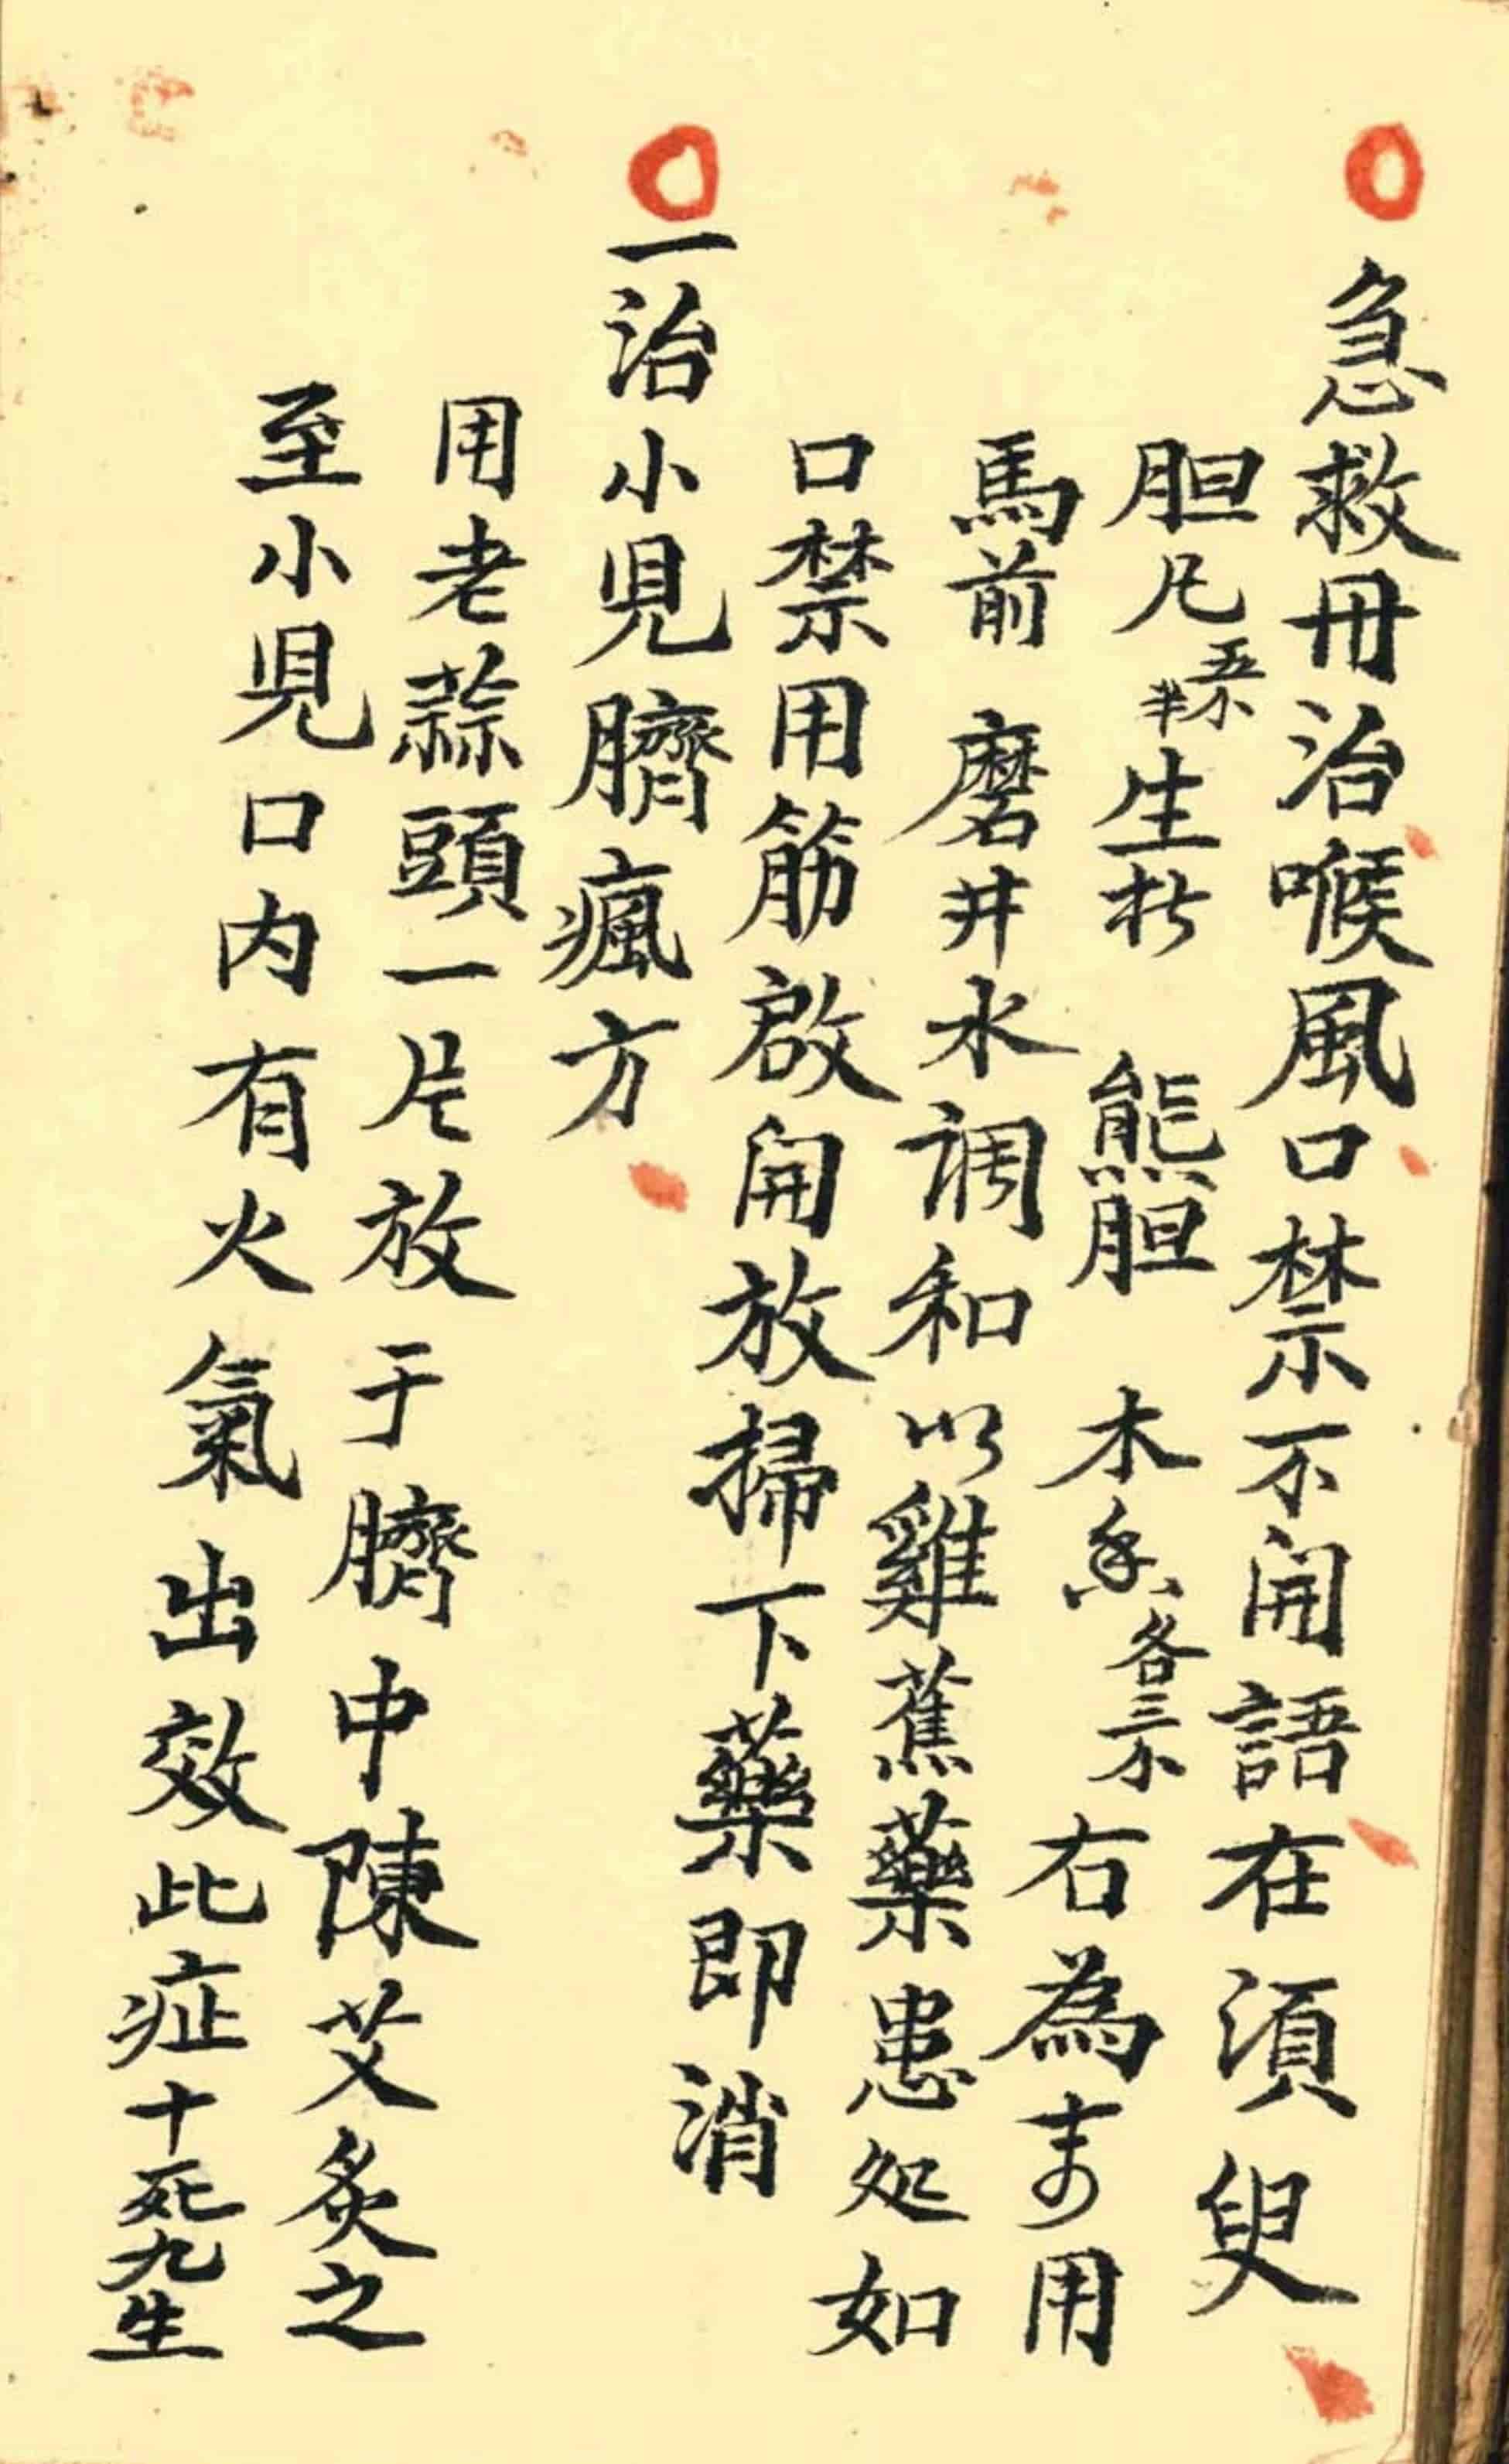 急救冊治喉風口禁不開語在須臾
胆凡 生 熊胆 木 各三 右為 用
馬前 磨井水調和以雞蕉藥患处如
口禁用筋啟開放掃下藥即消
一治小児臍瘋方
用老蒜頭一片放于臍中陳艾炙之
至小児口内有火氣出效此症十死九生